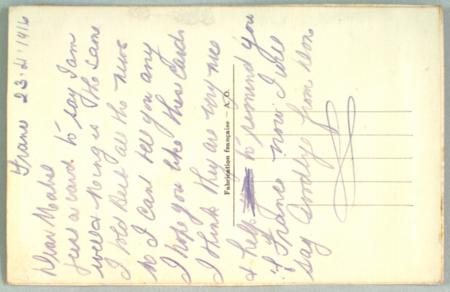 France 23.4.1916
Dear Matie
Just a card to say I am
well & Doing is the same
I told Bert all the news
so I cant tell you any
I hope you like these cards
I think they are very nice
& help to remind you
of France now I will
say Goodby from Don
Fabrication française – A. O.